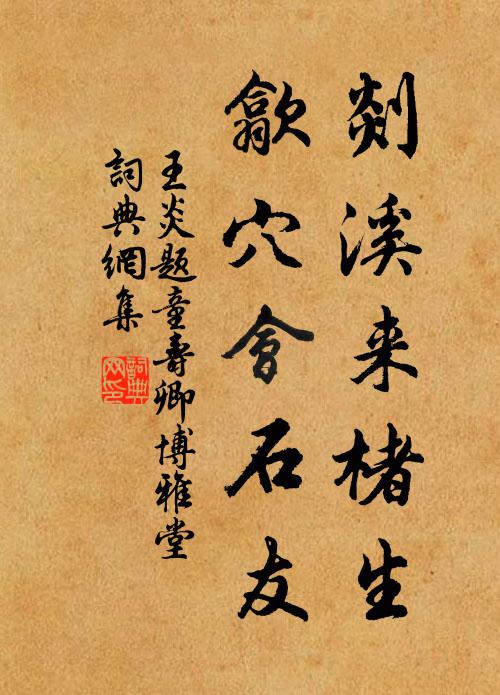 剡溪来楮生
歙穴會石友
王炎题童壽卿博雅堂
詞典網集
詞典
网印